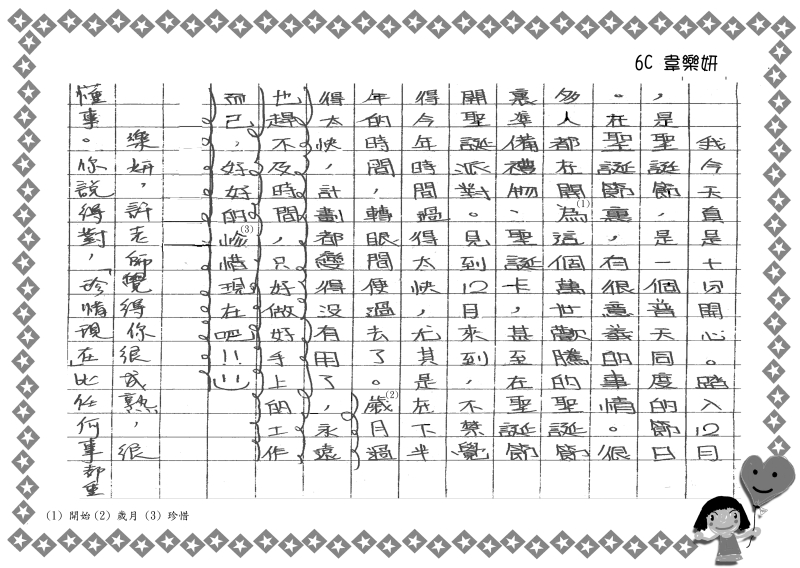 6C 韋樂妍
我今天真是十分開心。踏入12月
，是聖誕節，是一個普天同度的節日
。在聖誕節裏，有很意義的事情。很
多人都在開(1)為這個萬世歡騰的聖誕節
裏準備禮物、聖誕卡，甚至在聖誕節
開聖誕派對。見到12月來到，不禁覺
得今年時間過得太快，尤其是在下半
年的時間，轉眼間便過去了。歲(2)月過
得太快，計劃都變得沒有用了，永遠
也趕不及時間，只好做好手上的工作
而己，好好的惨(3)惜現在吧!!
樂妍，許老師覺得你很成熟，很
懂事。你說得對，「珍惜現在」比任何事都重
(1) 開始(2) 歲月 (3) 珍惜